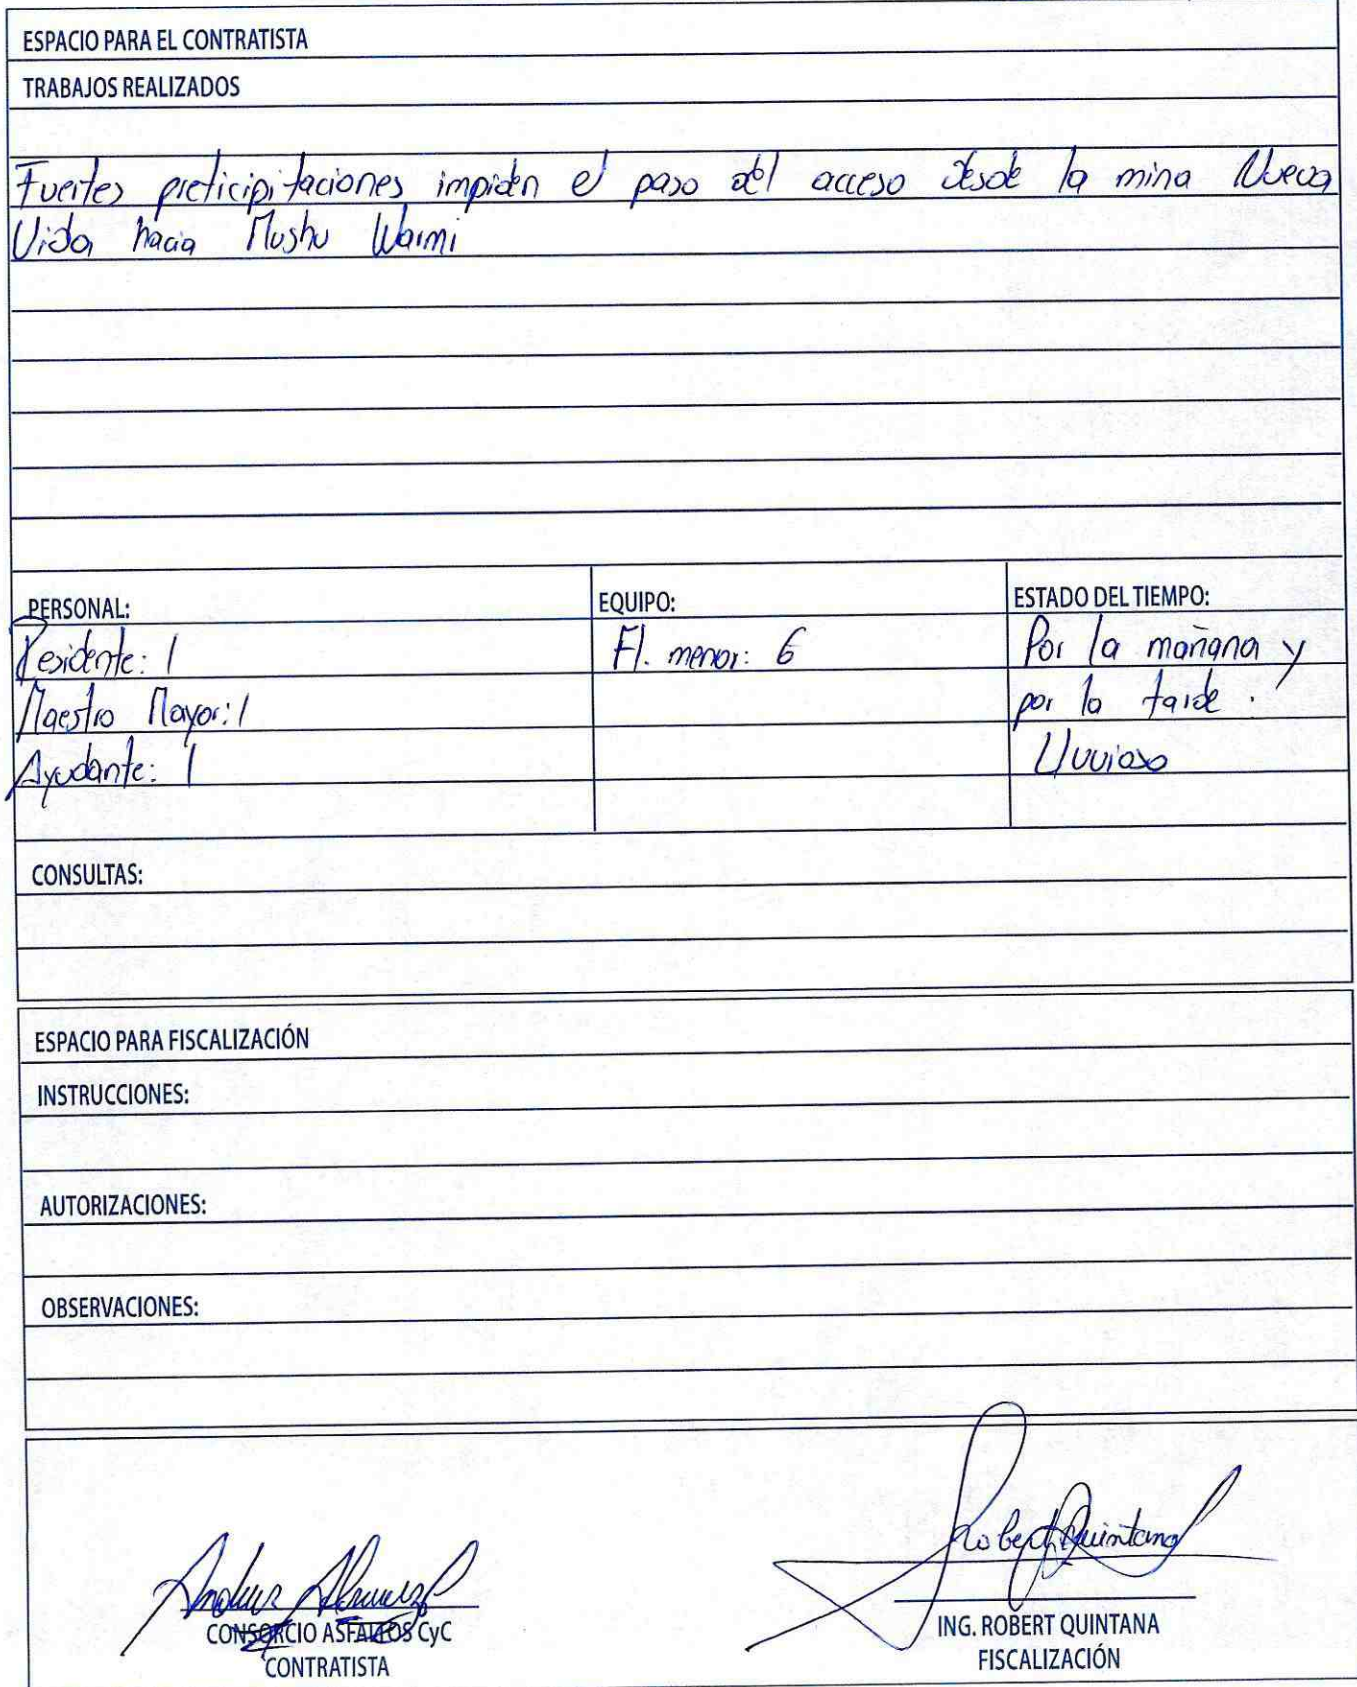 ESPACIO PARA EL CONTRATISTA
TRABAJOS REALIZADOS
Fuertes preticipitaciones impiden el paso del acceso desde la mina Nueva
Vida hacia Mushu Warmi
PERSONAL:
Residente: 1
Maestro Mayor: 1
Ayudante: 1
EQUIPO:
H. menor: 6
ESTADO DEL TIEMPO:
Por la mañana y
por la tarde.
Lluvioso
CONSULTAS:
ESPACIO PARA FISCALIZACIÓN
INSTRUCCIONES:
AUTORIZACIONES:
OBSERVACIONES:
CONSORCIO ASFALTOS CyC
CONTRATISTA
Robert Quintana
ING. ROBERT QUINTANA
FISCALIZACIÓN